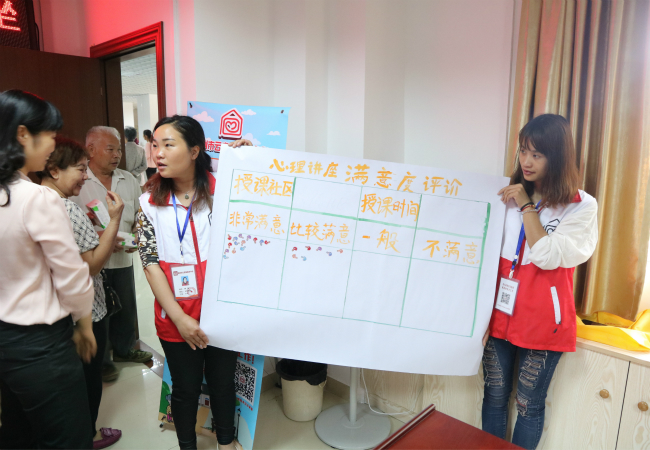 心理讲座满意度评价
授课社区 授课时间
非常满意 比较满意 一般 不满意